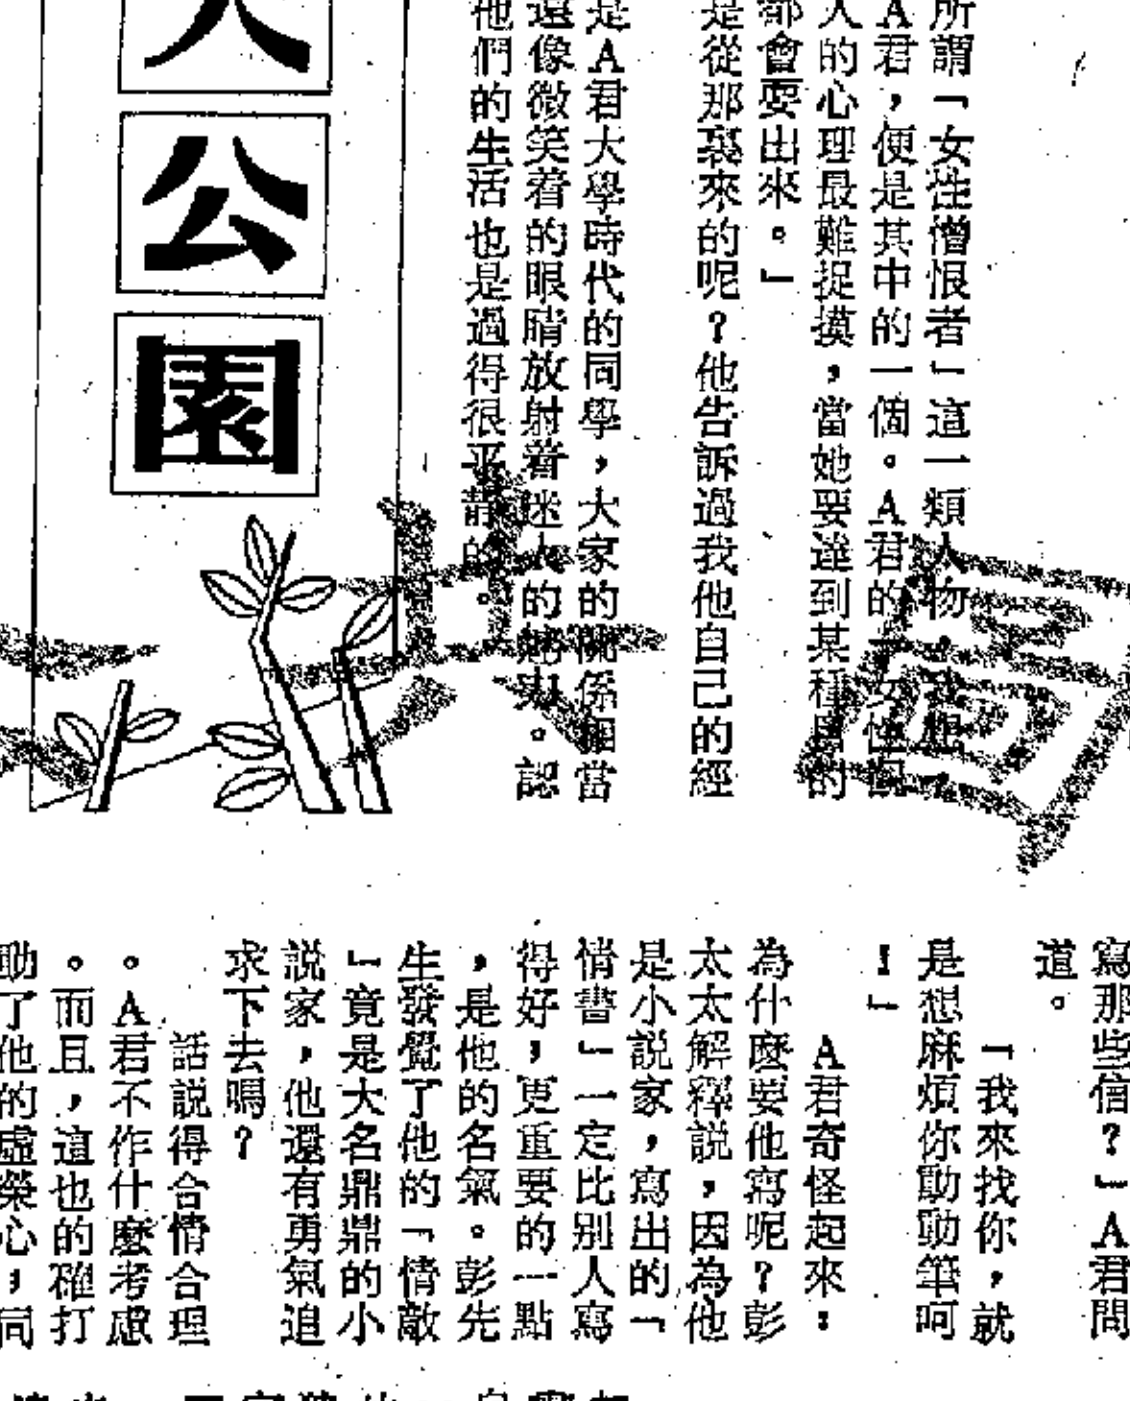 所謂「女性憎恨者」這一類人物，我想，
A君，便是其中的一個。A君的
人的心理最難捉摸，當她要達到某種目的
都會耍出來。」
是從那裏來的呢？他告訴過我他自己的經
是A君大學時代的同學，大家的關係相當
還像微笑着的眼睛放射着迷人的魅力。認
他們的生活也是過得很平靜的。
大公園
寫那些信？」A君問
道。
「我來找你，就
是想麻煩你動動筆呵
！」
A君奇怪起來：
為什麼要他寫呢？彭
太太解釋説，因為他
是小説家，寫出的「
情書」一定比别人寫
得好，更重要的一點
，是他的名氣。彭先
生發覺了他的「情敵
」竟是大名鼎鼎的小
説家，他還有勇氣追
求下去嗎？
話説得合情合理
。A君不作什麼考慮
。而且，這也的確打
動了他的虛榮心，同